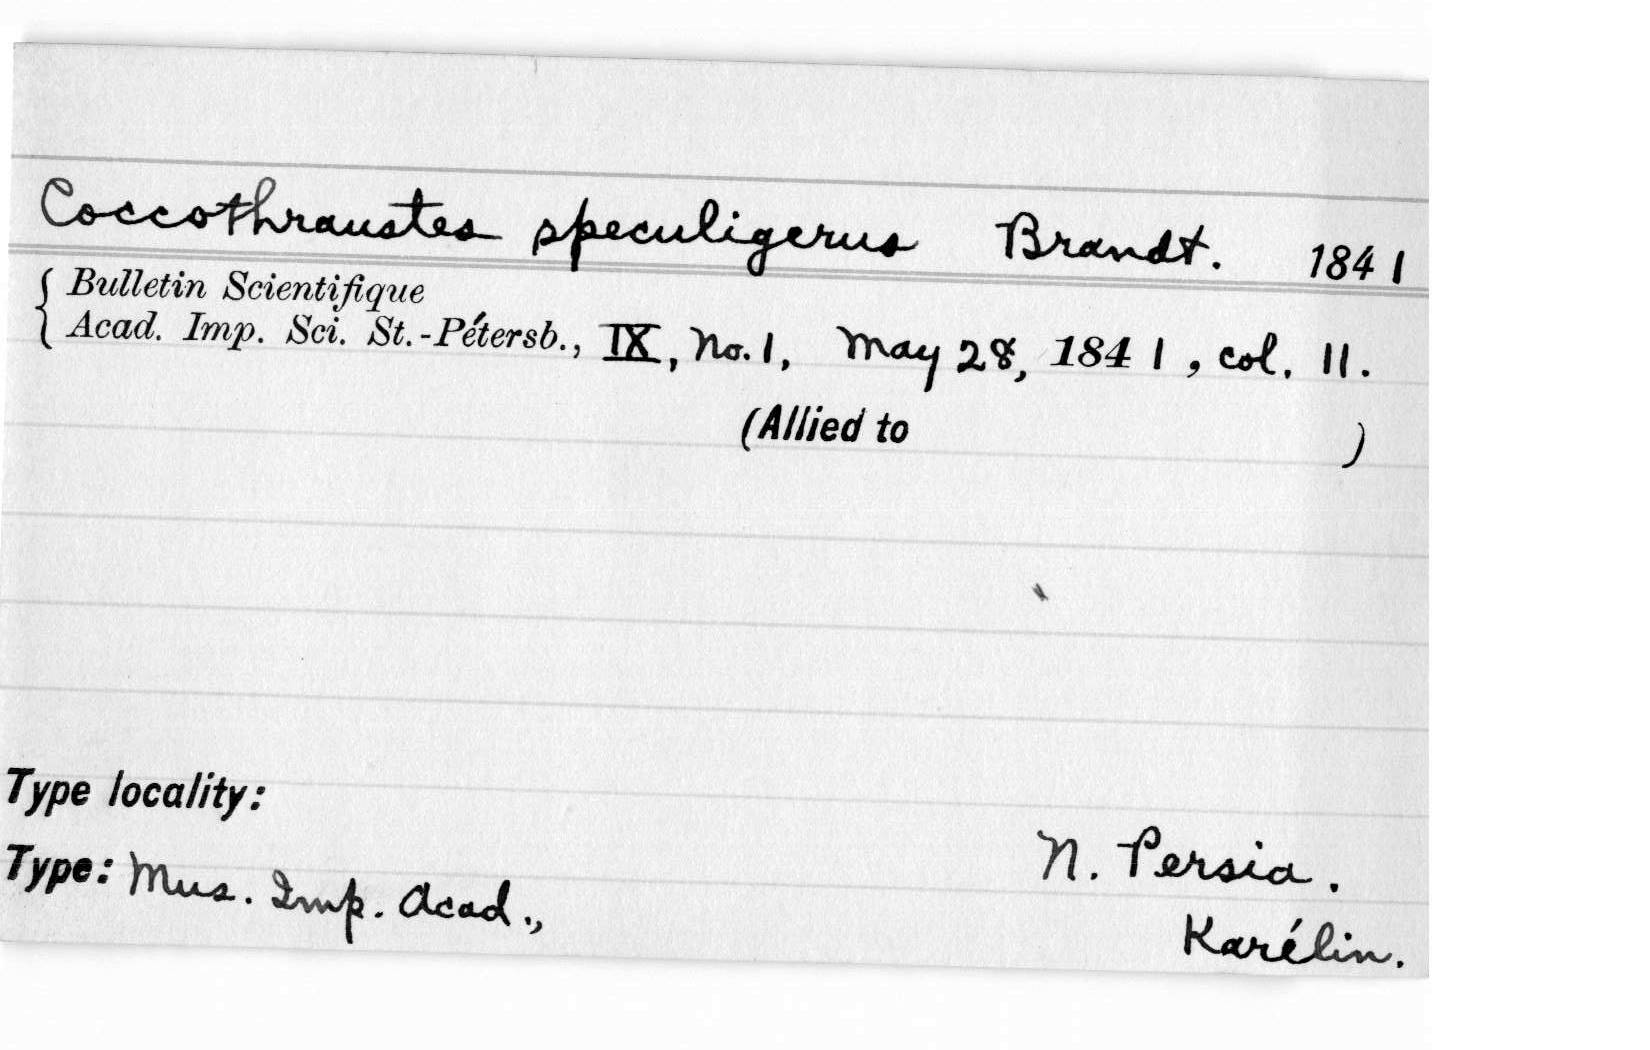 Coccothraustes speculigerus Brandt. 1841
{ Bulletin Scientifique
Acad. Imp. Sci. St.-Pétersb., IX, No. 1, May 28, 1841, col. 11.
(Allied to )
Type locality:
N. Persia.
Type: Mus. Imp. Acad.,
Karélin.